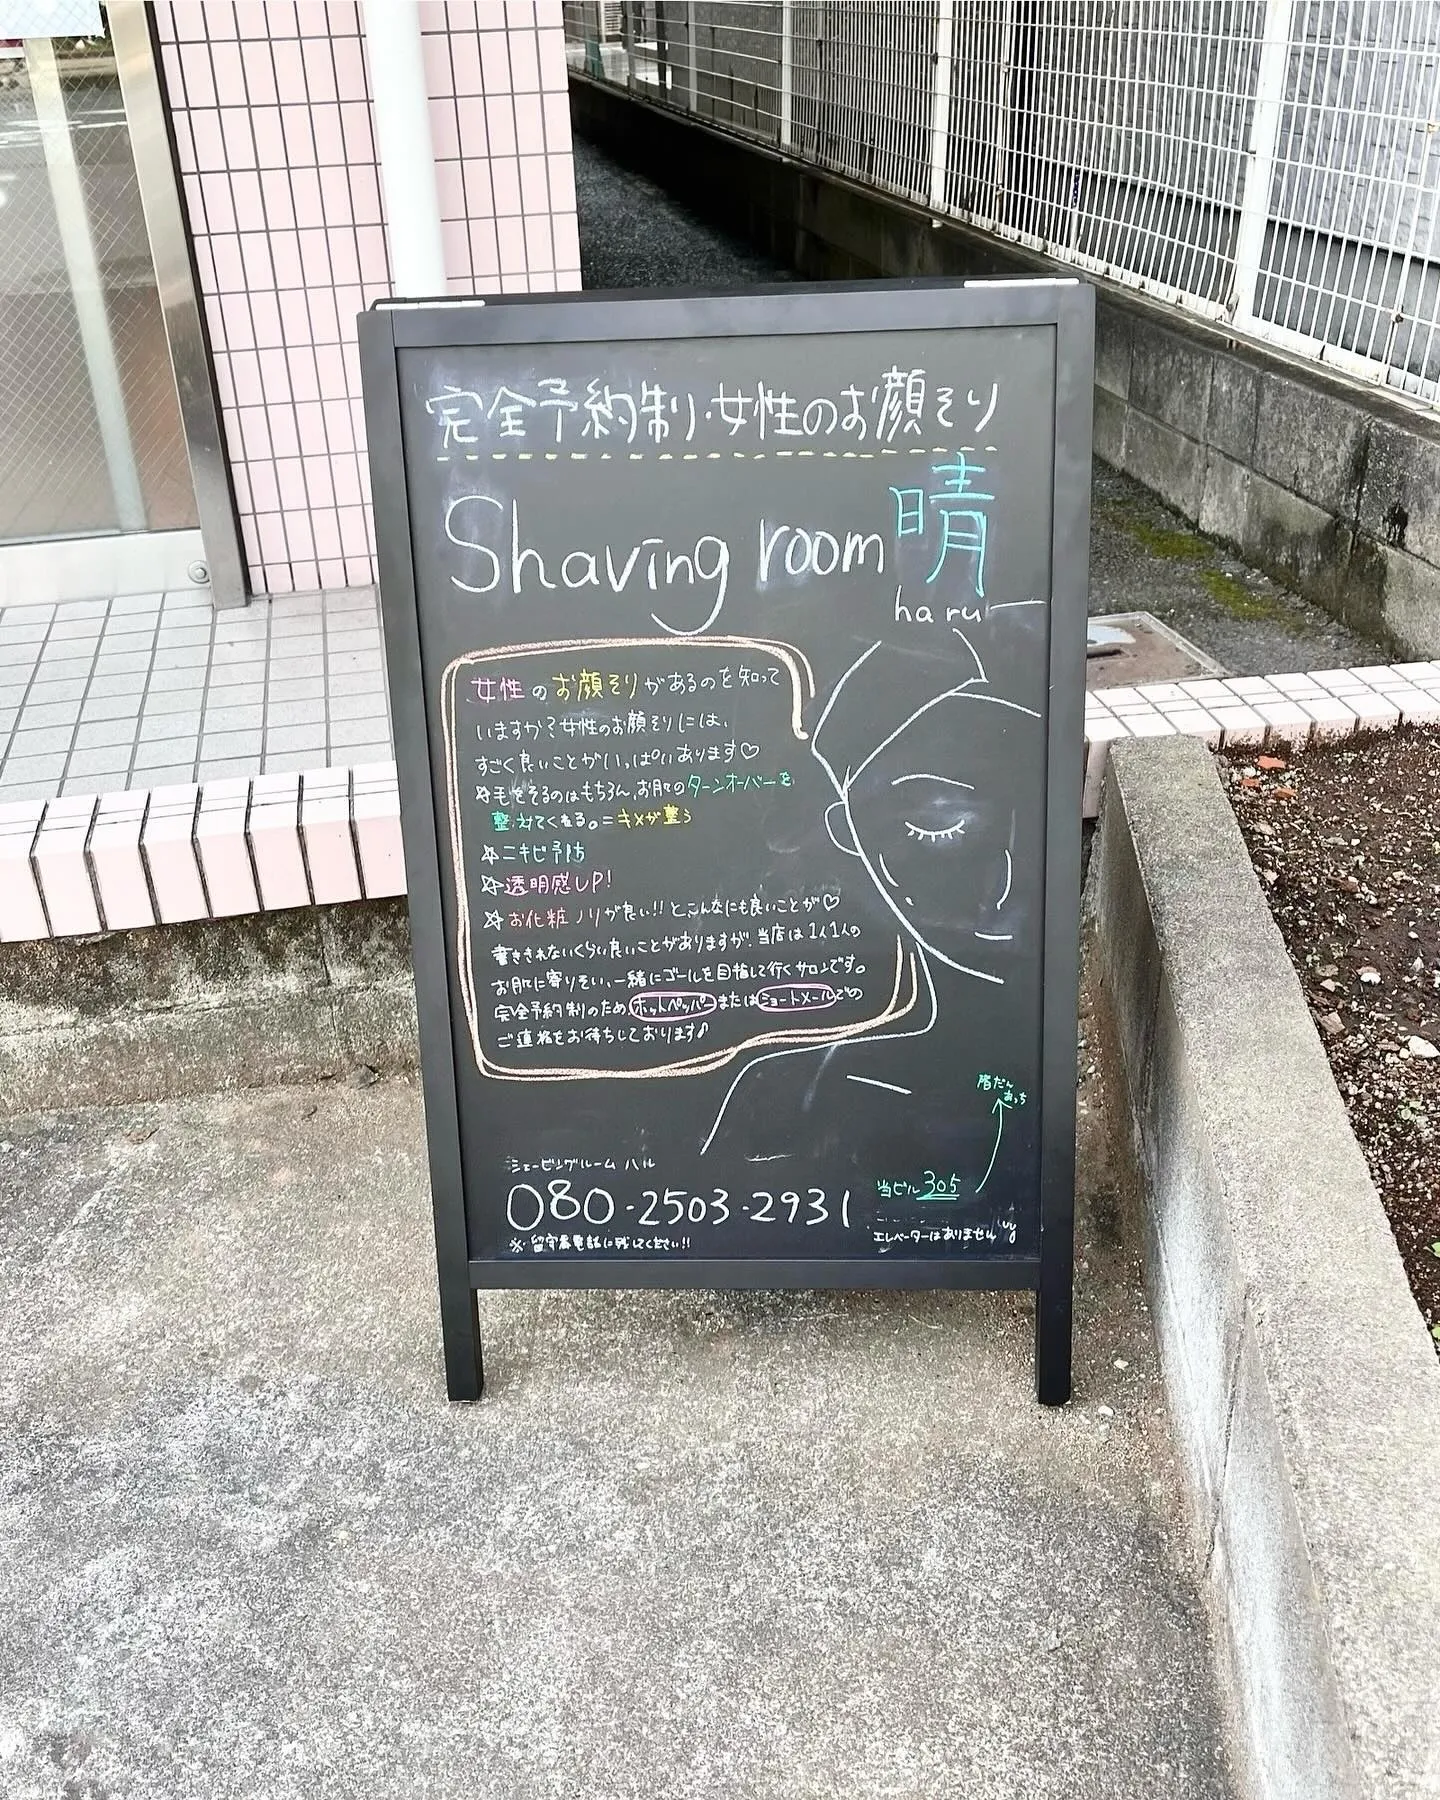 完全予約制・女性のお顔そり
Shaving room 晴
haru
女性のお顔そりがあるのを知って
いますか？女性のお顔そりには、
すごく良いことがいっぱいあります♡
☆毛をそるのはもちろん、お肌のターンオーバーを
整えてくれる。=キメが整う
☆ニキビ予防
☆透明感UP!
☆お化粧ノリが良い!! とこんなにも良いことが♡
書ききれないくらい良いことがありますが、当店は1人1人の
お肌に寄りそい、一緒にゴールを目指して行くサロンです。
完全予約制のため、ホットペッパーまたはショートメールでの
ご連絡をお待ちしております♪
階だん
あっち
シェービングルーム ハル
080-2503-2931
※留守番電話に残してください!!
当ビル305
エレベーターはありません